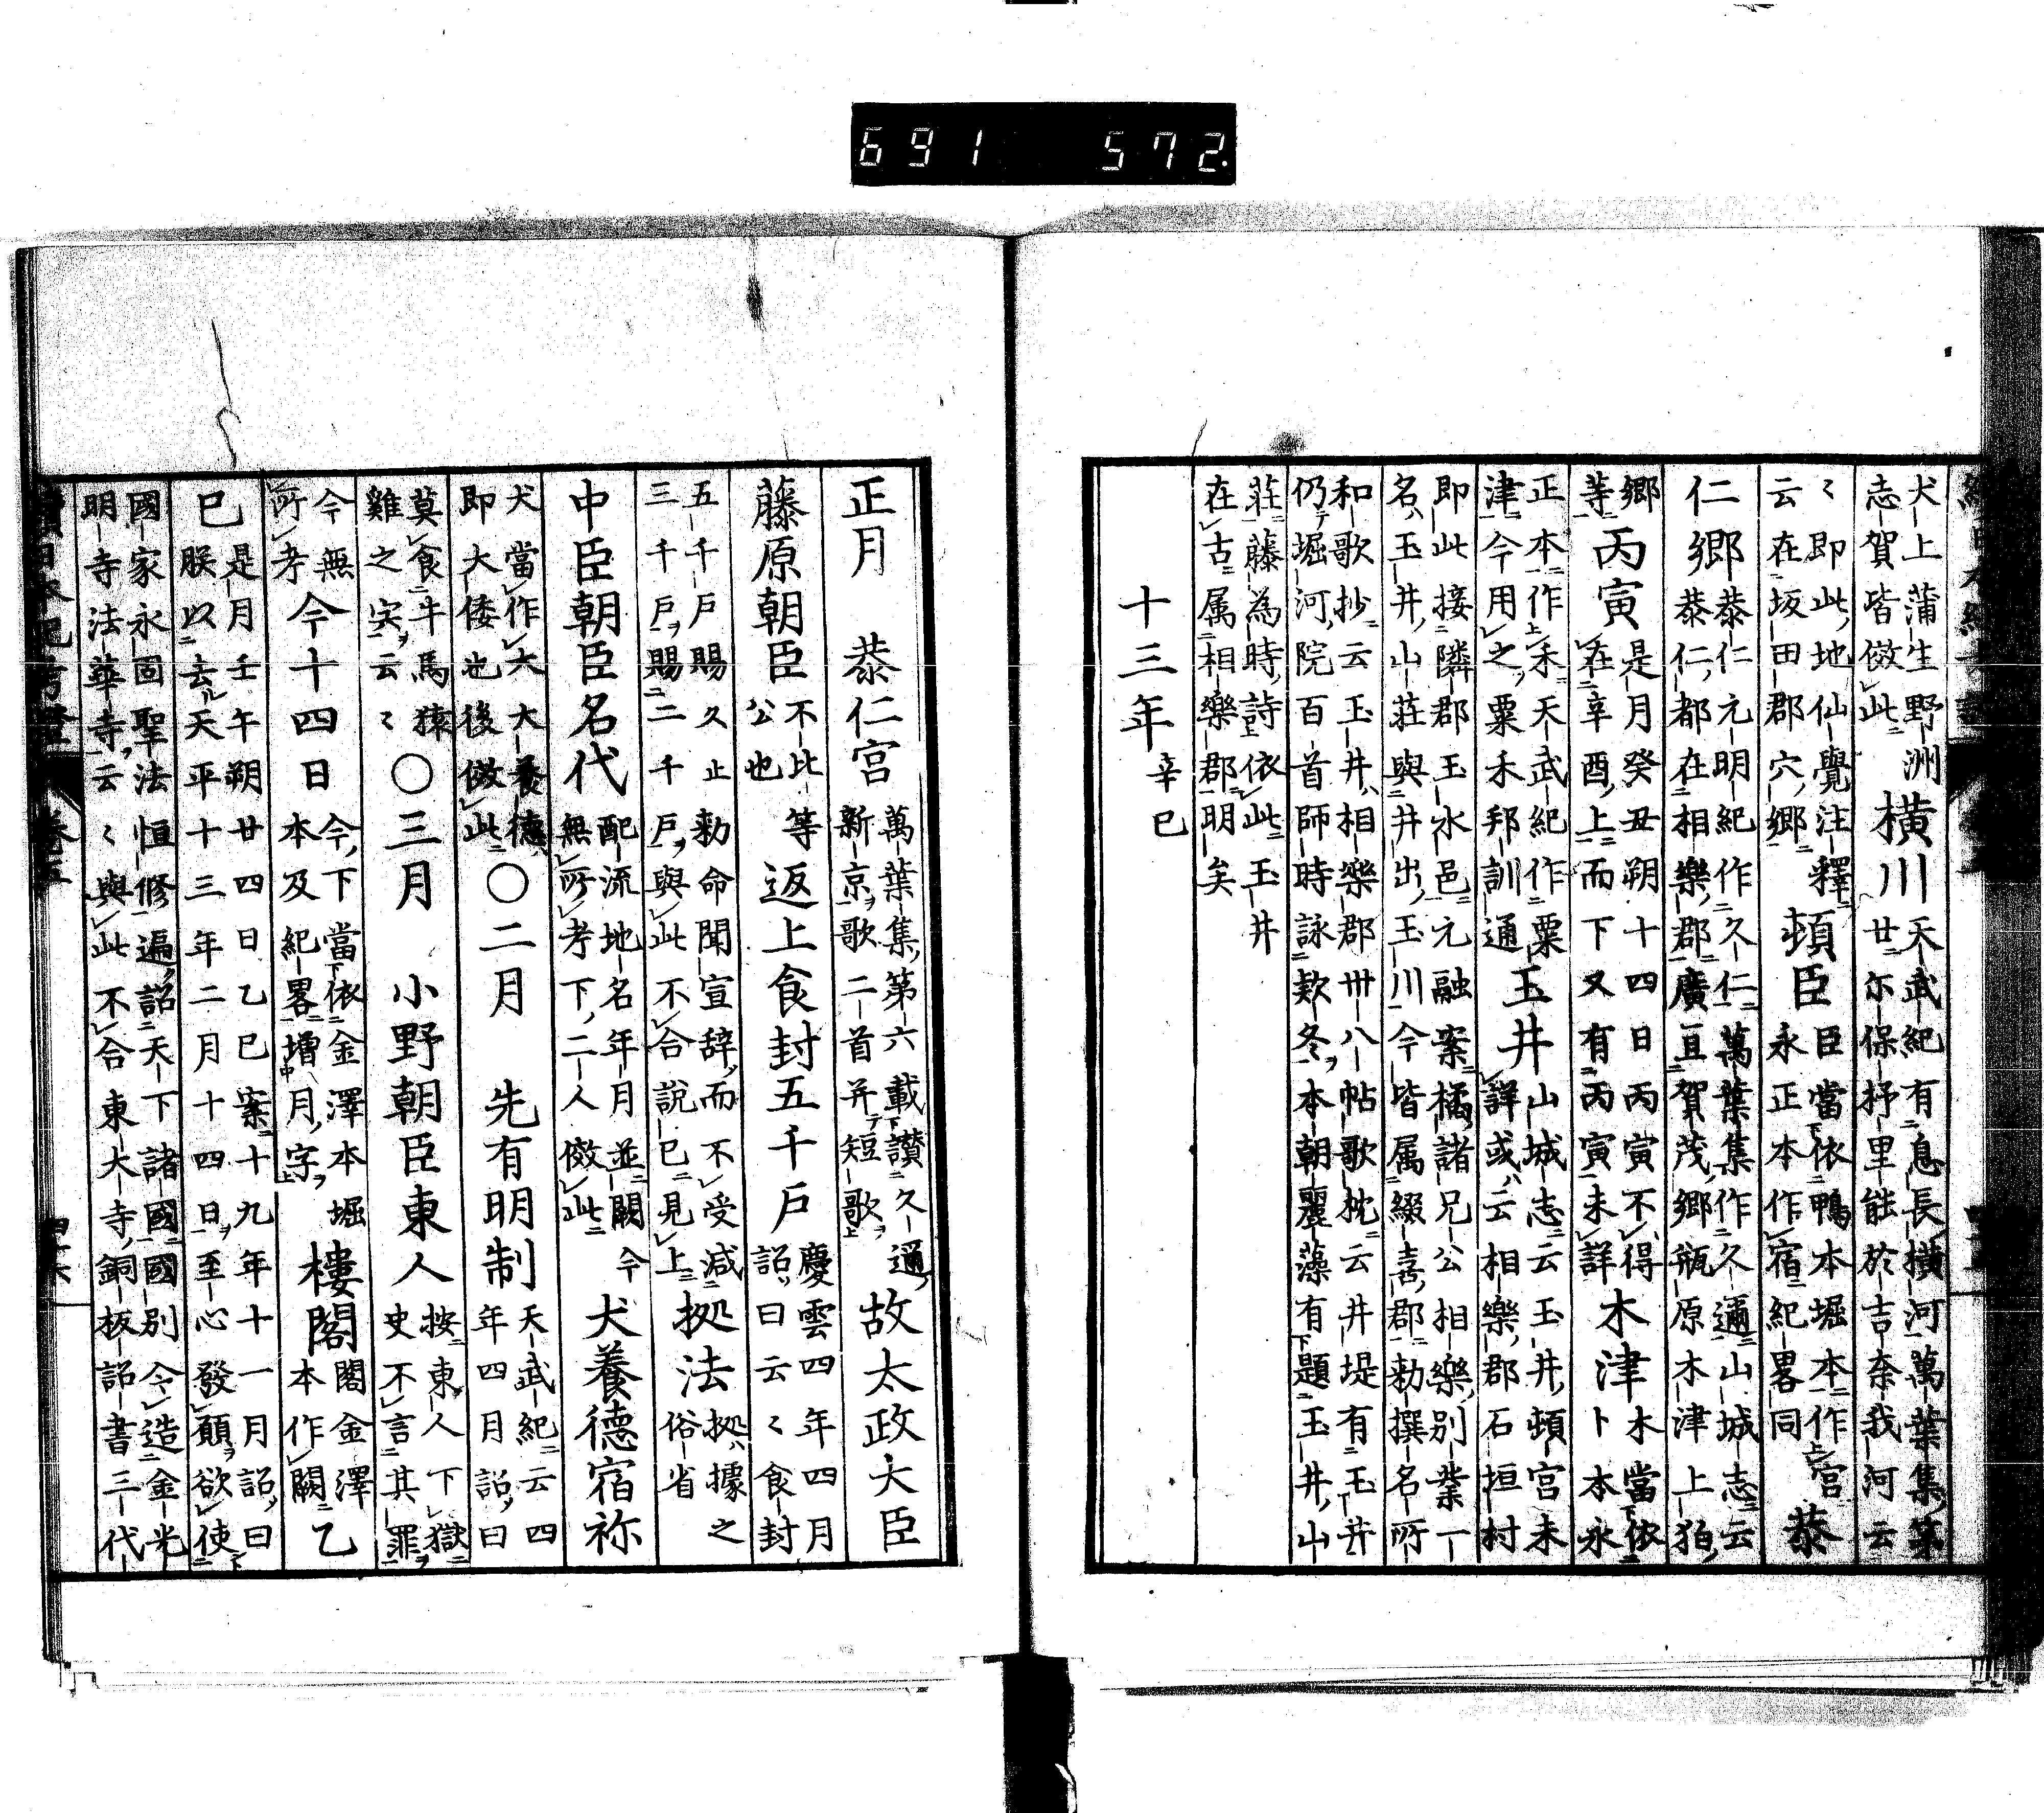 691 572
犬上蒲生野洲
志賀皆倣此
横川
天武紀有息長横河萬葉集第
廿尓保抒里能於吉奈我河云
〻即此地仙覺注釋
云在坂田郡穴郷
頓臣
臣當依鴨本堀本作宮
永正本作宿紀畧同
恭
仁郷
恭仁元明紀作久仁萬葉集作久邇山城志云
恭仁都在相樂郡廣亘賀茂郷瓶原木津上狛
郷
等
丙寅
是月癸丑朔十四日丙寅不得
在辛酉上而下又有丙寅未詳
木津
木當依
卜本永
正本作禾天武紀作粟
津今用之粟禾邦訓通
玉井
山城志云玉井頓宮未
詳或云相樂郡石垣村
即此接隣郡玉水邑元融案橘諸兄公相樂別業一
名玉井山莊與井出玉川今皆属綴喜郡勅撰名所
和歌抄云玉井相樂郡卅八帖歌枕云井堤有玉井
仍堀河院百首師時詠欵冬本朝麗藻有題玉井山
莊藤為時詩依此玉井
在古属相樂郡明矣
十三年辛巳
正月 恭仁宮
萬葉集第六載讃久邇
新京歌二首并短歌
故太政大臣
藤原朝臣
不比等
公也
返上食封五千戸
慶雲四年四月
詔曰云〻食封
五千戸賜久止勅命聞宣辞而不受減
三千戸賜二千戸與此不合説已見上
拠法
拠據之
俗省
中臣朝臣名代
配流地名年月並闕今
無所考下二人倣此
犬養德宿祢
犬當作大大養德
即大倭也後倣此
〇二月 先有明制
天武紀云四
年四月詔曰
莫食牛馬猿
雞之宍云〻
〇三月 小野朝臣東人
按東人下獄
史不言其罪
今無
所考
今十四日
今下當依金澤本堀
本及紀畧増月字
樓閣
閣金澤
本作闕
乙
巳
是月壬午朔廿四日乙巳案十九年十一月詔曰
朕以去天平十三年二月十四日至心發願欲使
國家永固聖法恒修遍詔天下諸國國別令造金光
明寺法華寺云〻與此不合東大寺銅板詔書三代